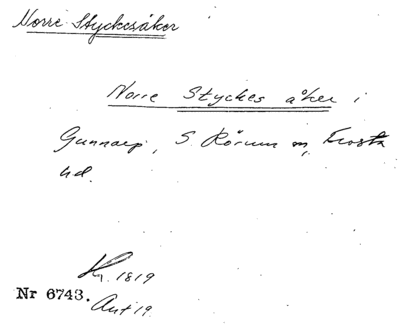 Norre Styckesåker
Norre Styckes åker i
Gunnarp, S. Rörum sn, Frosta
hd.
1819
Nr 6743.
Ant 19.